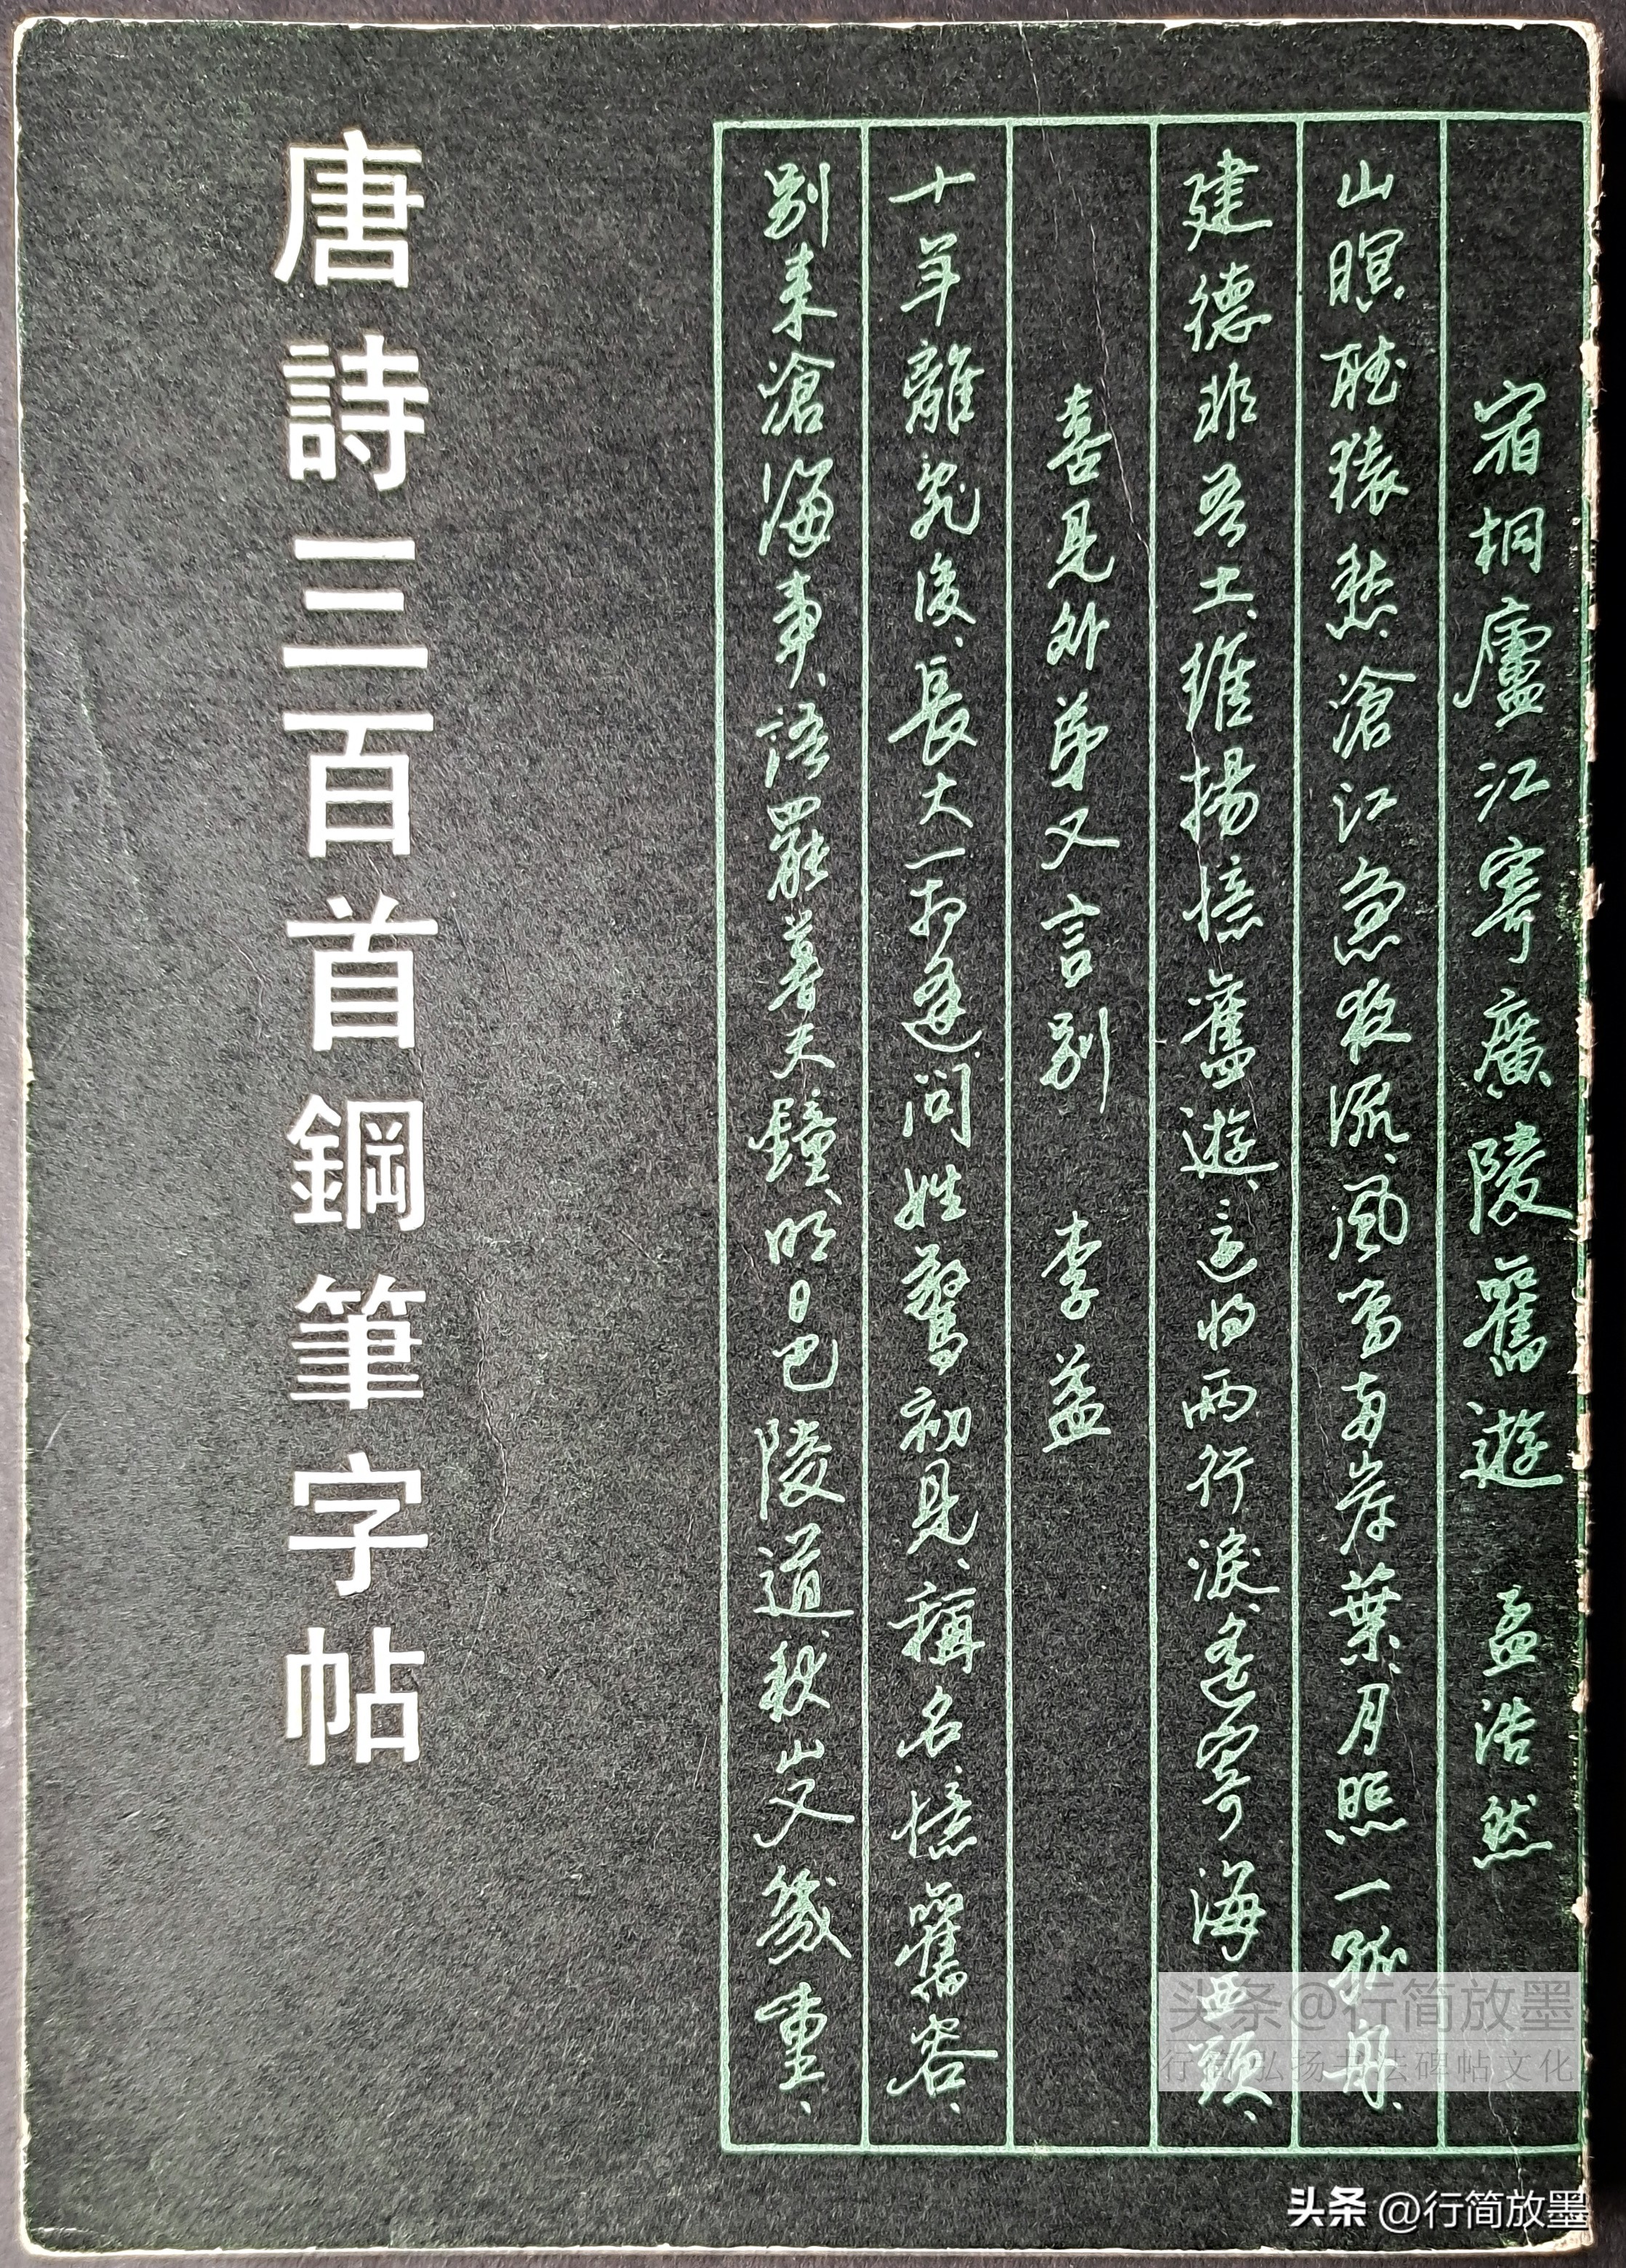 宿桐廬江寄廣陵舊遊 孟浩然
山暝聽猿愁、滄江急夜流、風鳴兩岸葉、月照一孤舟、
建德非吾土、維揚憶舊遊、還將兩行淚、遙寄海西頭、
喜見外弟又言別 李益
十年離亂後、長大一相逢、問姓驚初見、稱名憶舊容、
別來滄海事、語罷暮天鐘、明日巴陵道、秋山又幾重、
唐詩三百首鋼筆字帖
头条@行简放墨
行简弘扬书法碑帖文化
头条 @行简放墨